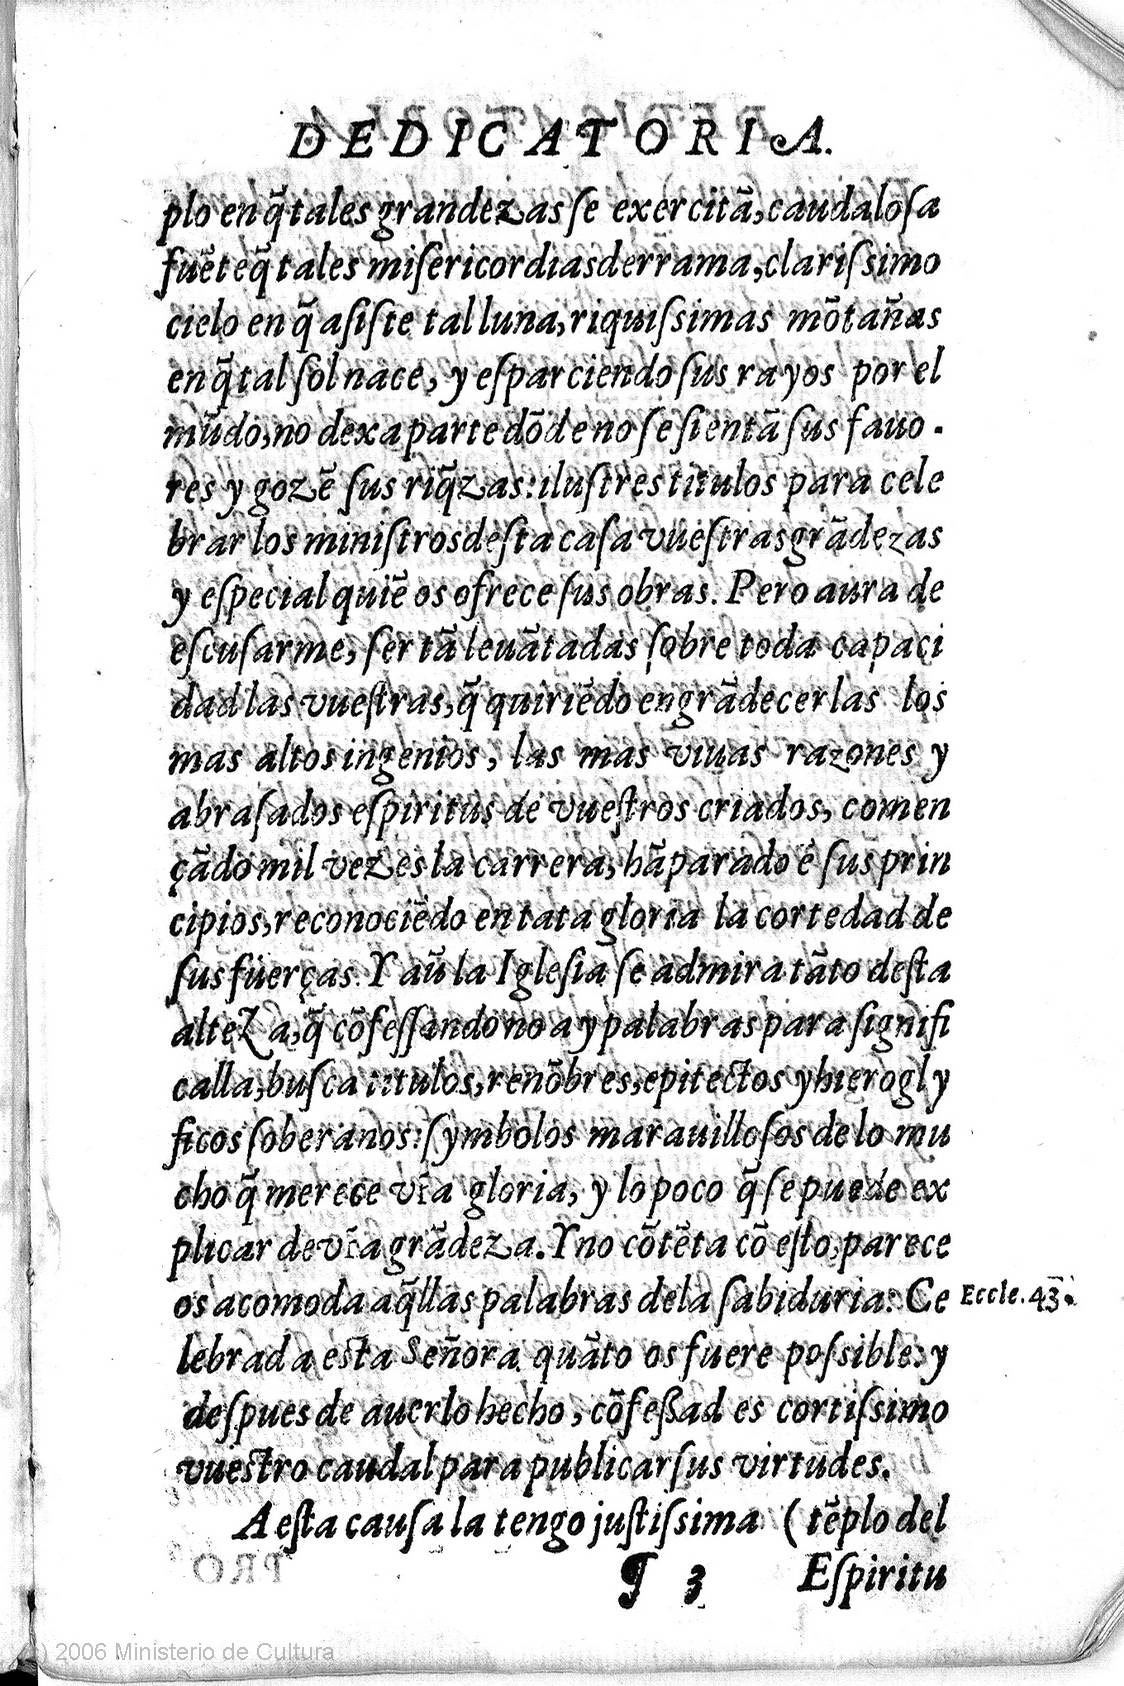 DEDICATORIA.
plo en q̃ tales grandezas se exercitã, caudalosa
fuẽte q̃ tales misericordias derrama, clarissimo
cielo en q̃ asiste tal luna, riquissimas mõtañas
en q̃ tal sol nace, y esparciendo sus rayos por el
mũdo, no dexa parte dõde no se sientã sus fauo.
res y gozẽ sus riq̃zas: ilustres titulos para cele
brar los ministros desta casa vuestras grãdezas
y especial quiẽ os ofrece sus obras. Pero aura de
escusarme, ser tã leuãtadas sobre toda capaci
dad las vuestras, q̃ quiriẽdo engrãdecerlas los
mas altos ingenios, las mas viuas razones y
abrasados espiritus de vuestros criados, comen
çãdo mil vezes la carrera, hã parado ẽ sus prin
cipios, reconociẽdo en tata gloria la cortedad de
sus fuerças. Y aũ la Iglesia se admira tãto desta
alteza, q̃ cõfessando no ay palabras para signifi
calla, busca titulos, renõbres, epitectos y hierogly
ficos soberanos: symbolos marauillosos de lo mu
cho q̃ merece vr̃a gloria, y lo poco q̃ se puede ex
plicar de vr̃a grãdeza. Y no cõtẽta cõ esto, parece
os acomoda aq̃llas palabras de la sabiduria: Ce
Eccle. 43.
lebrad a esta Señora quãto os fuere possible: y
despues de auerlo hecho, cõfeßad es cortissimo
vuestro caudal para publicar sus virtudes.
A esta causa la tengo justissima (tẽplo del
¶ 3 Espiritu
(c) 2006 Ministerio de Cultura